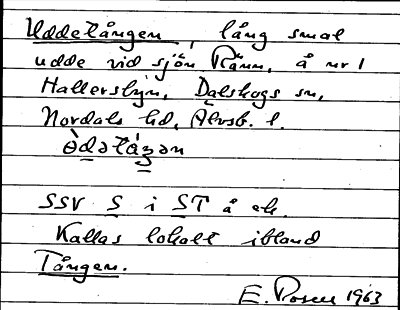 Uddetången, lång smal
udde vid sjön Ränn, å nr 1
Hallersbyn, Dalskogs sn,
Nordals hd, Älvsb. l.
òdətáŋən
SSV S i ST å ek.
Kallas lokalt ibland
Tången.
E. Rosén 1963